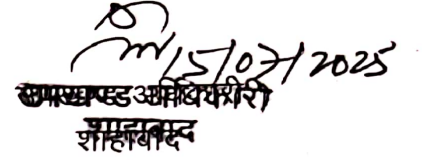 15/07/2025
उपखण्ड अधिकारी
शाहाबाद